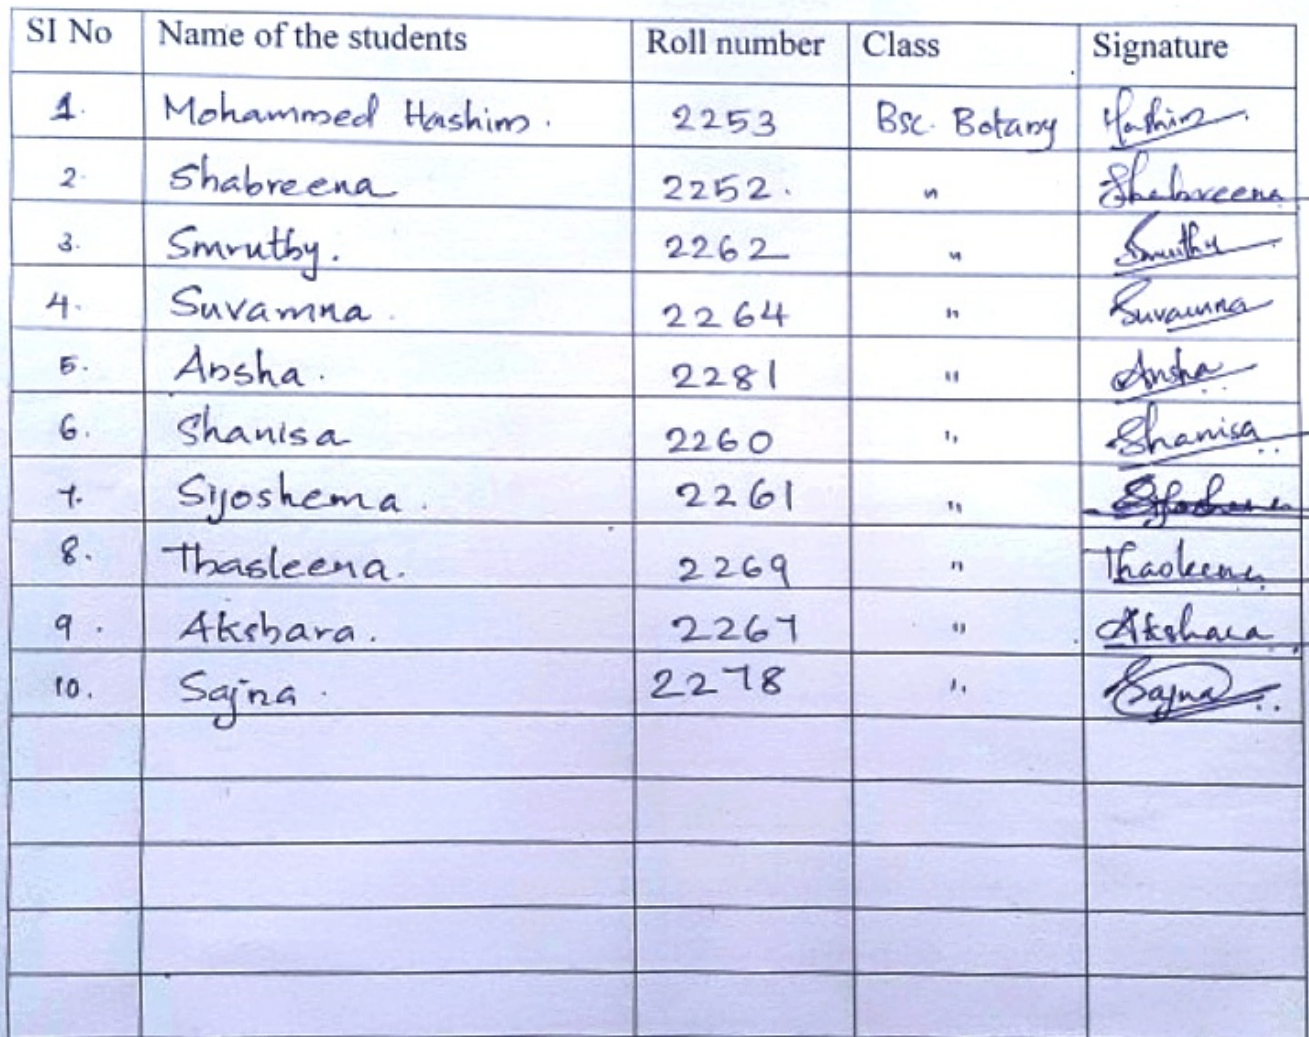 SI No Name of the students Roll number Class Signature
1. Mohammed Hashim. 2253 Bsc. Botany Hashim
2. Shabreena 2252. " Shabreena
3. Smruthy. 2262 " Smruthy
4. Suvamna. 2264 " Suvamna
5. Ansha. 2281 " Ansha
6. Shanisa 2260 " Shanisa
7. Sijoshema. 2261 "
8. Thasleena. 2269 " Thasleena
9. Akshara. 2267 " Akshara
10. Sajna. 2278 " Sajna